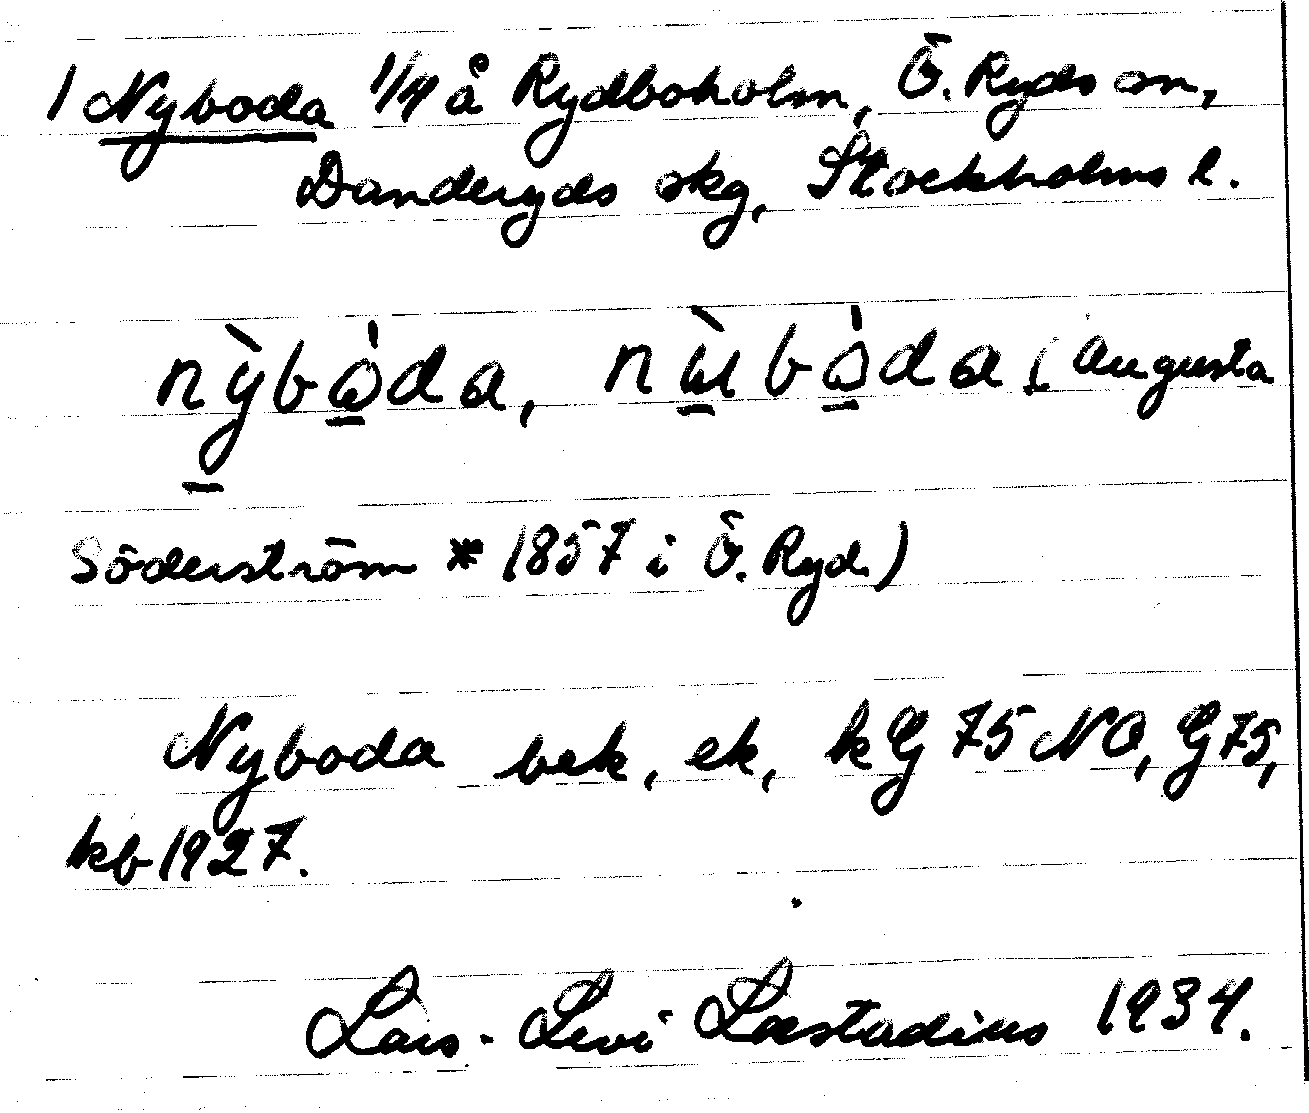 1 Nyboda 1/4 å Rydboholm, Ö. Ryds sn,
Danderyds skg, Stockholms l.
nỳ̱bo̱̍da, nɯ̱̀bo̱̍da (Augusta
Söderström * 1857 i Ö. Ryd.)
Nyboda bek, ek, kG 75 NO, G 75,
kb 1927.
Lars-Levi Læstadius 1934.